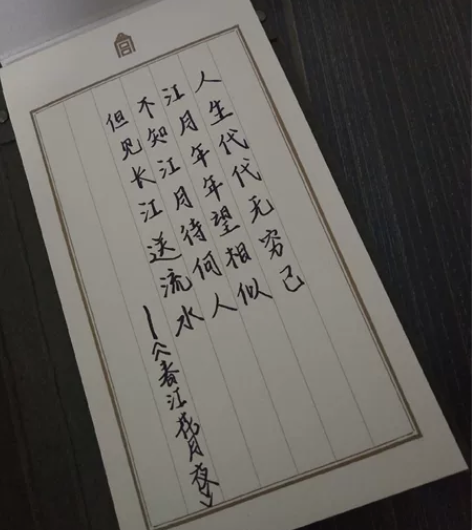 人生代代无穷已
江月年年望相似
不知江月待何人
但见长江送流水
—《春江花月夜》